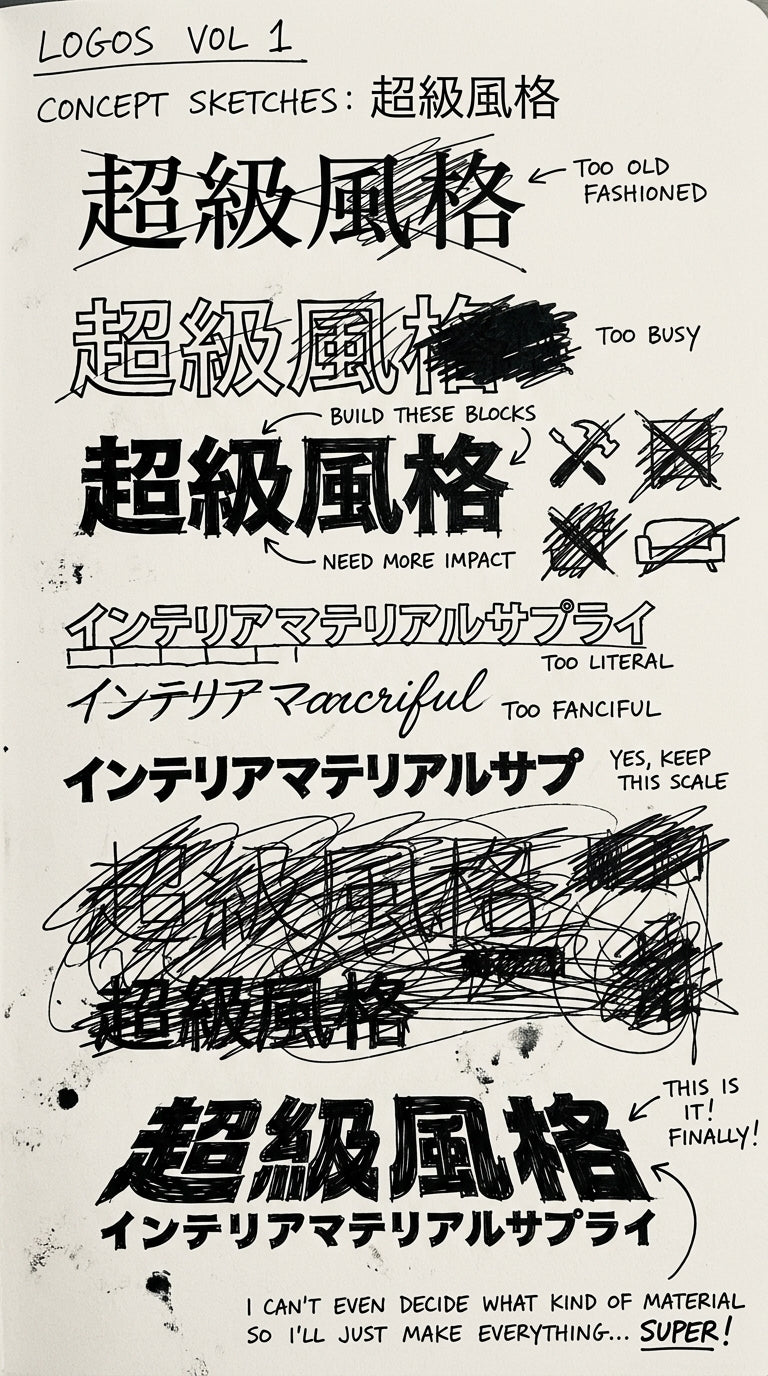 LOGOS VOL 1
CONCEPT SKETCHES: 超級風格
超級風格
TOO OLD
FASHIONED
超級風格
TOO BUSY
BUILD THESE BLOCKS
超級風格
NEED MORE IMPACT
インテリアマテリアルサプライ
TOO LITERAL
インテリア マ
TOO FANCIFUL
インテリアマテリアルサプ
YES, KEEP
THIS SCALE
超級風格
超級風格
THIS IS
IT!
FINALLY!
超級風格
インテリアマテリアルサプライ
I CAN'T EVEN DECIDE WHAT KIND OF MATERIAL
SO I'LL JUST MAKE EVERYTHING... SUPER!